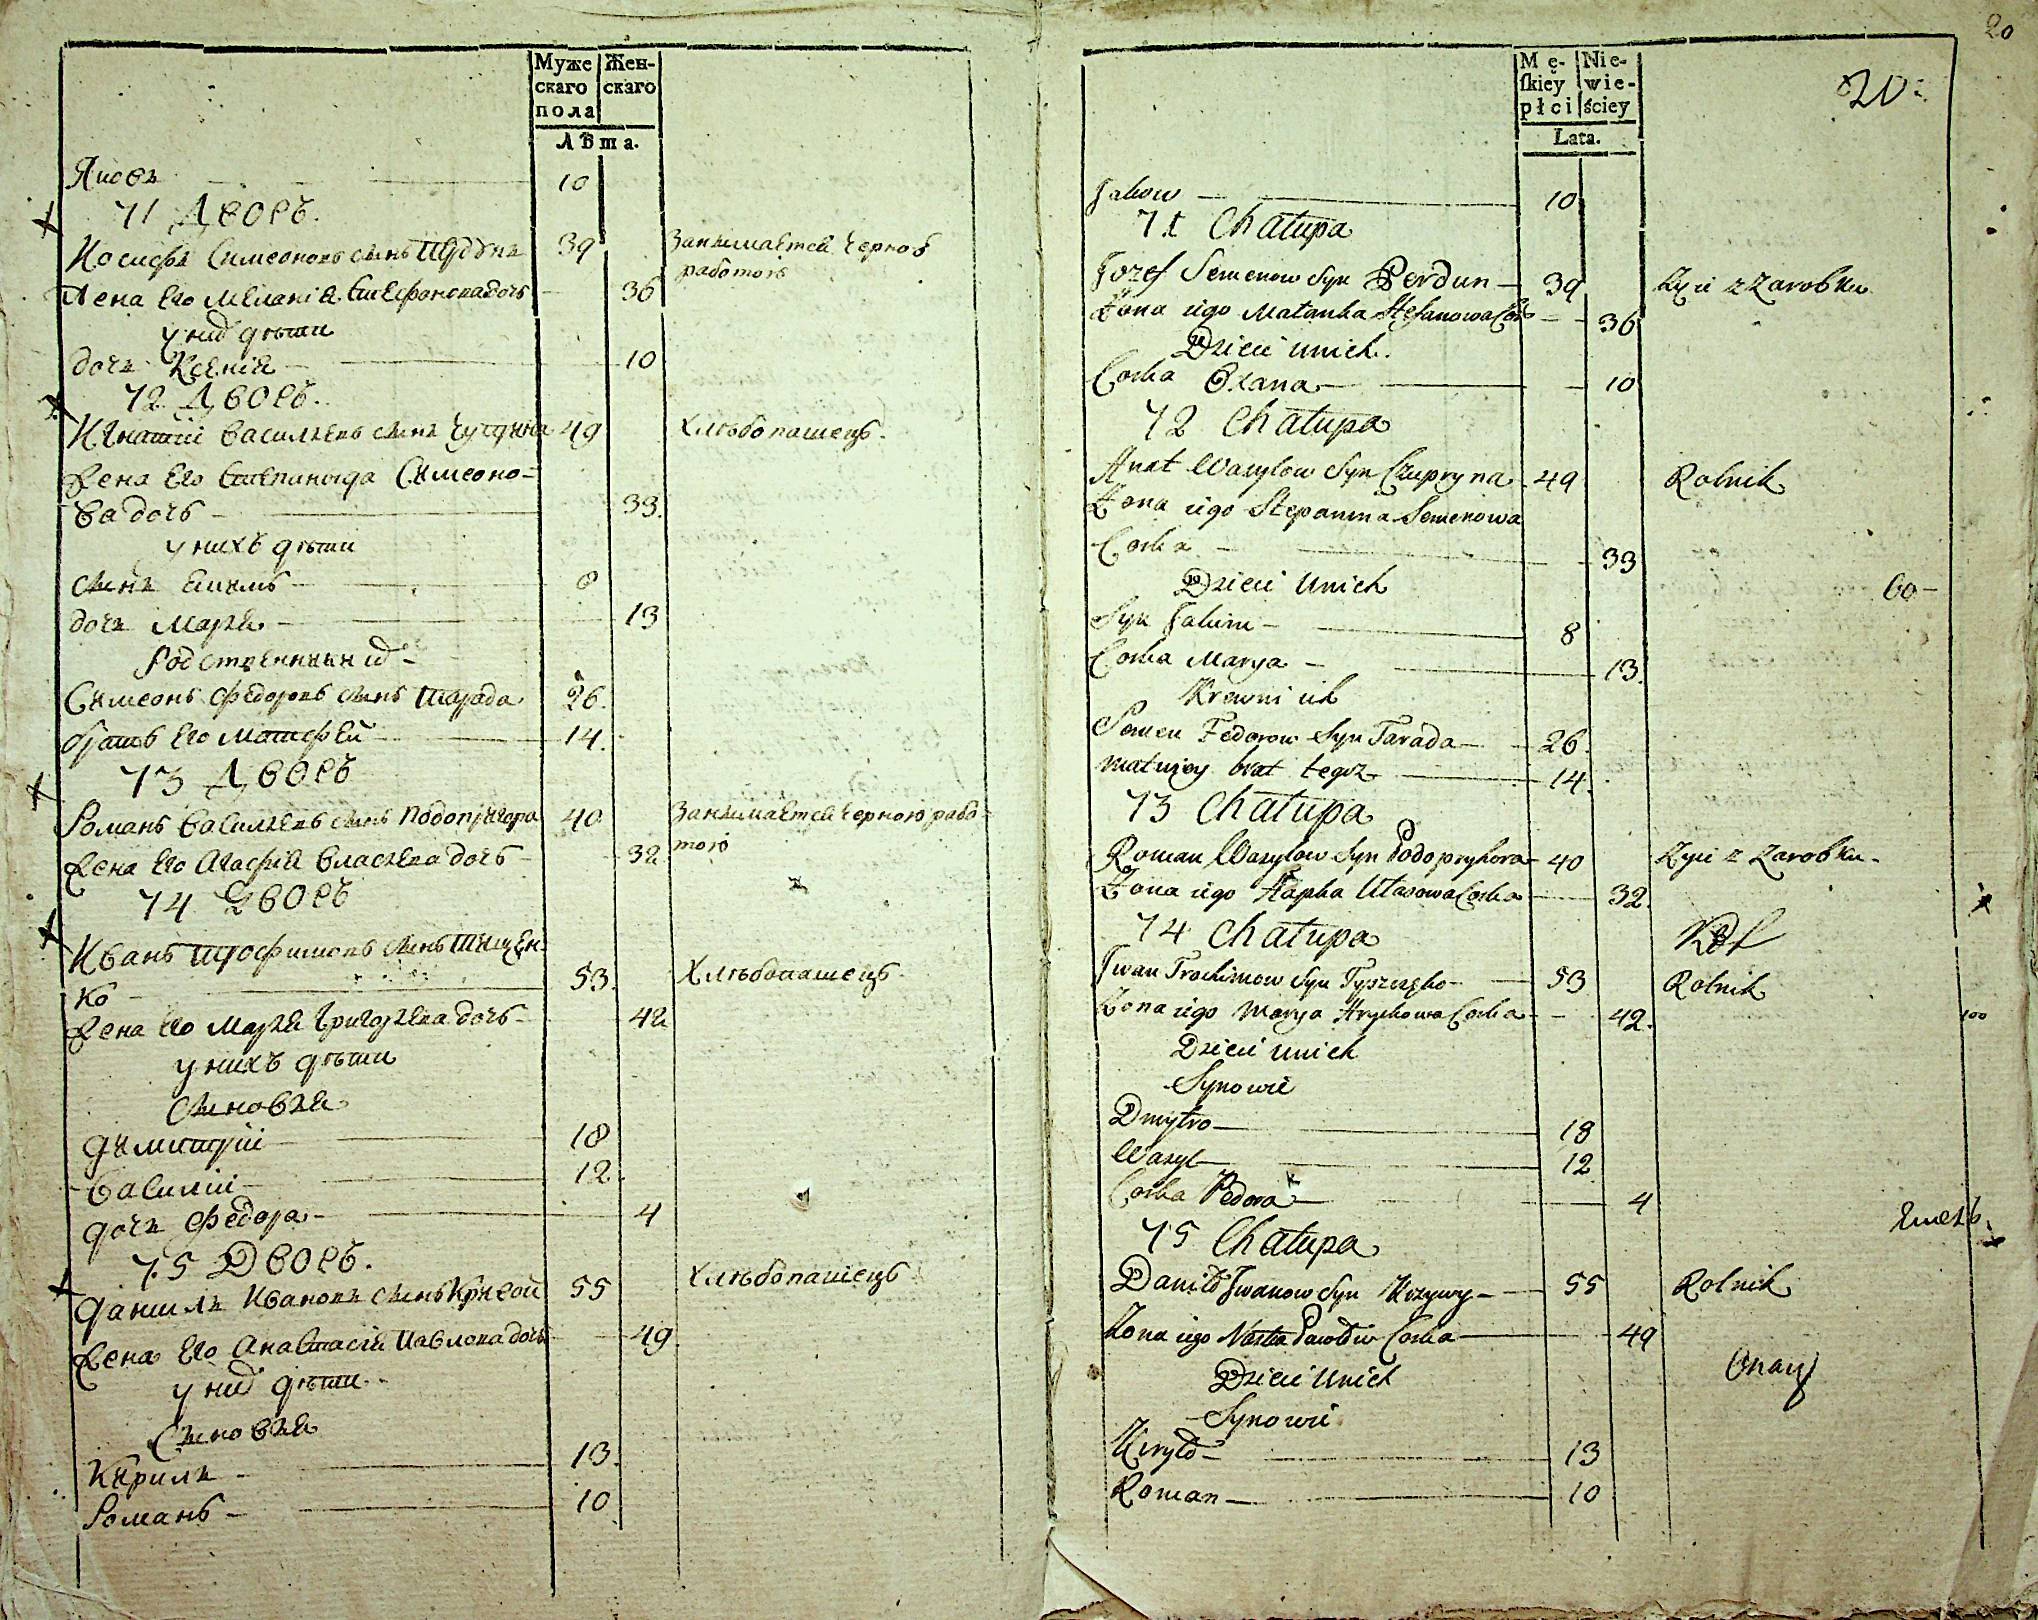 Муже
скаго
пола
Жен-
скаго
Лѣта.
Яковъ 10
71 Дворъ.
Иосифъ Симеоновъ сынъ Пердунъ 39 Занимается черноу
работою
Жена его Меланія Стефановадочь 36
у нихъ дѣти
дочь Ксенія 10
72 Дворъ.
Игнатій Васильевъ сынъ Чупрына 49 Хлѣбопашецъ.
Жена его Степанида Симеоно=
ва дочь 33.
у нихъ дѣти
сынъ Екимъ 8
дочь Марья 13
Родственники ихъ
Симеонъ Федоровъ сынъ Тарада 26.
братъ его Матфей 14.
73 Дворъ
Романъ Васильевъ сынъ Подопригора 40 Занимается черною рабо=
тою
Жена его Агафія Власьева дочь 32
74 Дворъ
Иванъ Трофимовъ сынъ Тищен
ко 53. Хлѣбопашецъ.
Жена его Марья Григорьева дочь 42
у нихъ дѣти
Сыновья
Димитрій 18
Василій 12.
дочь Федора 4
75 Дворъ.
Данилъ Ивановъ сынъ Кривой 55 Хлѣбопашецъ
Жена его Анастасія Павлова дочь 49.
у нихъ дѣти
Сыновья
Кирилъ 13.
Романъ 10
20
20
Mę-
ſkiey
płci
Nie-
wie-
ściey
Lata.
Jakow 10
71 Chałupa
Jozef Semenow Syn Perdun 39 Zyie z Zarobku
Zona iego Małanka Stefanowa Cor 36
Dzieci unich.
Corka Oxana 10
72 Chałupa
Hnat Wasylow Syn Czupryna 49 Rolnik
Zona iego Stepanina Semenowa
Corka 33
Dzieci Unich
Syn Jakim 8
Corka Marya 13.
Krewni ich
Semen Fedorow Syn Tarada 26.
Matwiey brat tegoz 14.
73 Chałupa
Roman Wasylow Syn Podopryhora 40 Zyie z Zarobku.
Zona iego Hapka Ułasowa Corka 32.
74 Chałupa
Jwan Trochimow Syn Tyszczęko 53 Rolnik
Zona iego Marya Hryckowa Corka 42. 100
Dzieci unich
Synowie
Dmytro 18
Wasyl 12
Corka Fedora 4
75 Chałupa
Daniło Jwanow Syn Krzywy 55 Rolnik
Zona iego Nastia Pawłow Corka 49
Dzieci Unich
Synowie
Kiryło 13
Roman 10